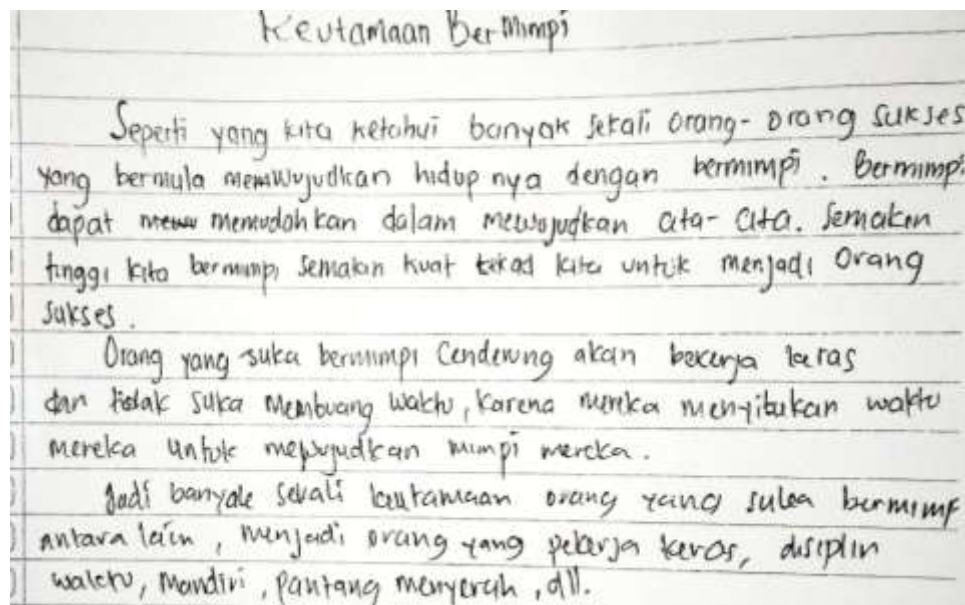 Keutamaan Bermimpi
Seperti yang kita ketahui banyak sekali orang-orang sukses
yang bermula memwujudkan hidup nya dengan bermimpi. Bermimpi
dapat memudahkan dalam mewujudkan cita-cita. Semakin
tinggi kita bermimpi semakin kuat tekad kita untuk menjadi orang
sukses.
Orang yang suka bermimpi Cenderung akan bekerja keras
dan tidak suka membuang waktu, karena mereka menyibukan waktu
mereka untuk mewujudkan mimpi mereka.
Jadi banyak sekali keutamaan orang yang suka bermimp
antara lain, menjadi orang yang pekerja keras, disiplin
waktu, mandiri, pantang menyerah, dll.